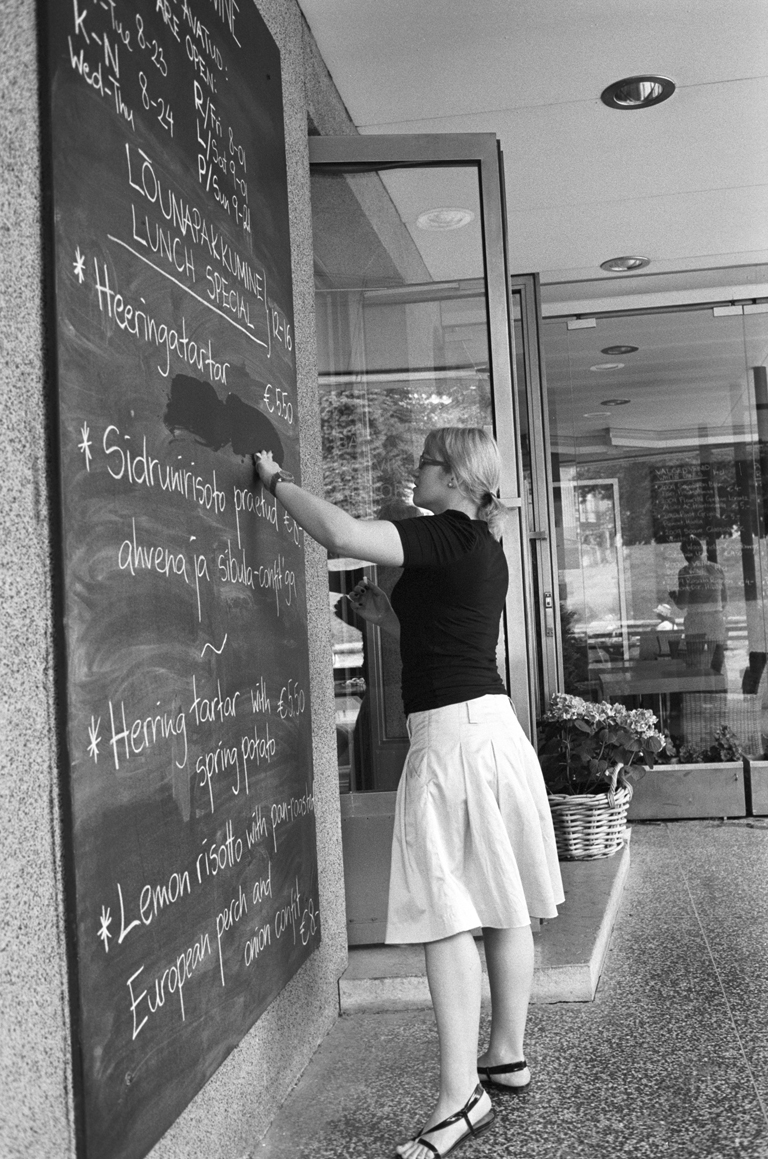 ARE OPEN:
K-N 8-23
Wed-Thu 8-24
R/Fri 8-01
L/Sat 9-01
P/Sun 9-21
LÕUNAPAKKUMINE
LUNCH SPECIAL 12-16
* Heeringatartar
€5.50
* Sidrunirisoto praetud €8.-
ahvena ja sibula-confit'ga
~
* Herring tartar with €5.50
spring potato
* Lemon risotto with pan-roasted
European perch and
onion confit €8.-